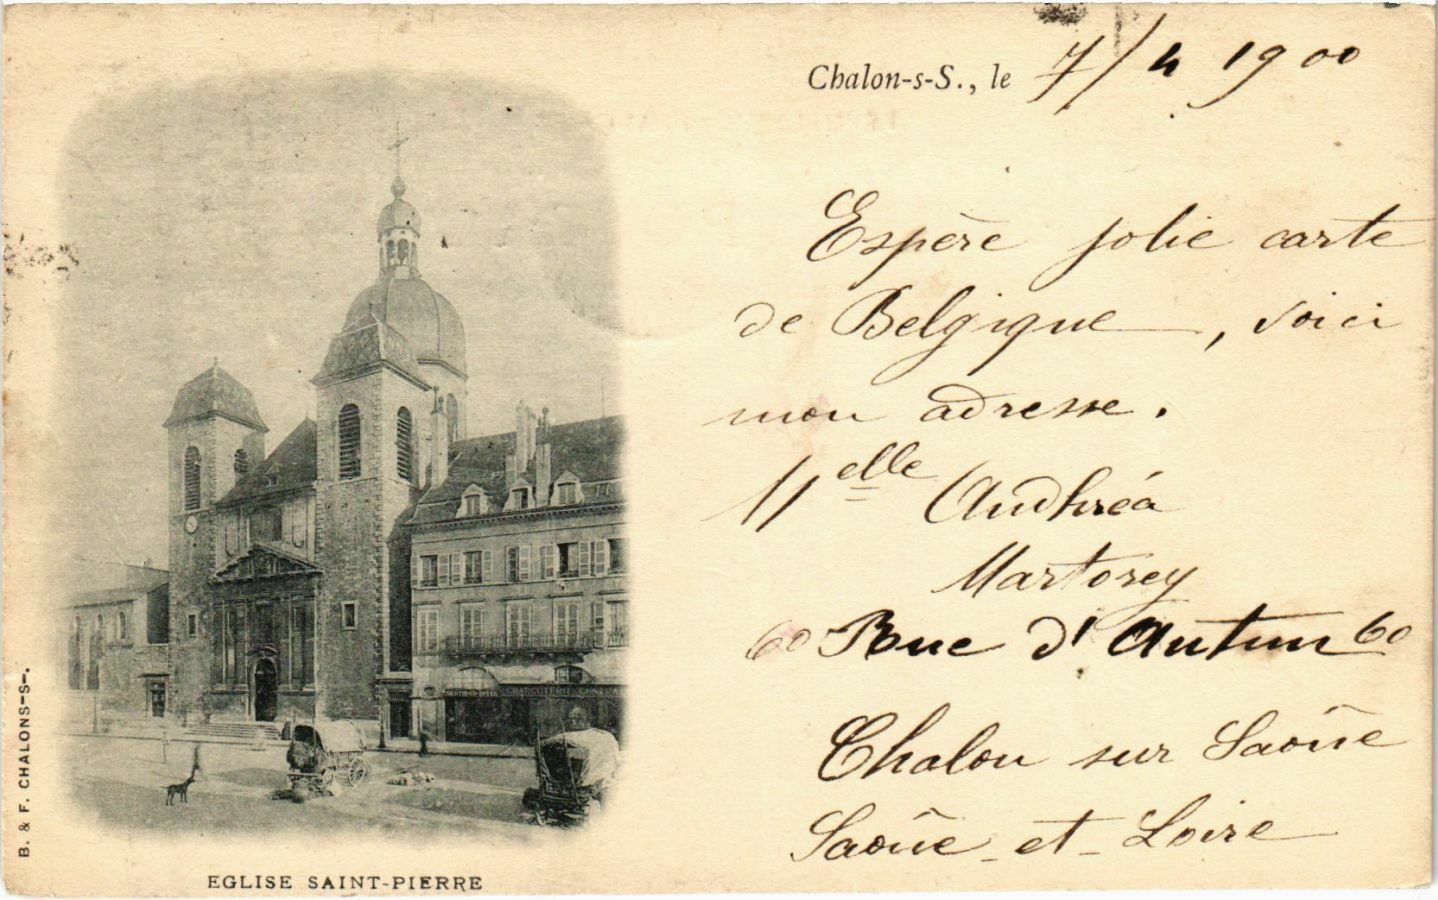 Chalon-s-S., le 7/4 1900
Espère jolie carte
de Belgique, voici
mon adresse.
Melle Audhréa
Martorey
60 Rue d'Autun 60
Chalon sur Saône
Saône-et-Loire
CHARCUTERIE
B. & F. CHALONS-S-.
EGLISE SAINT-PIERRE